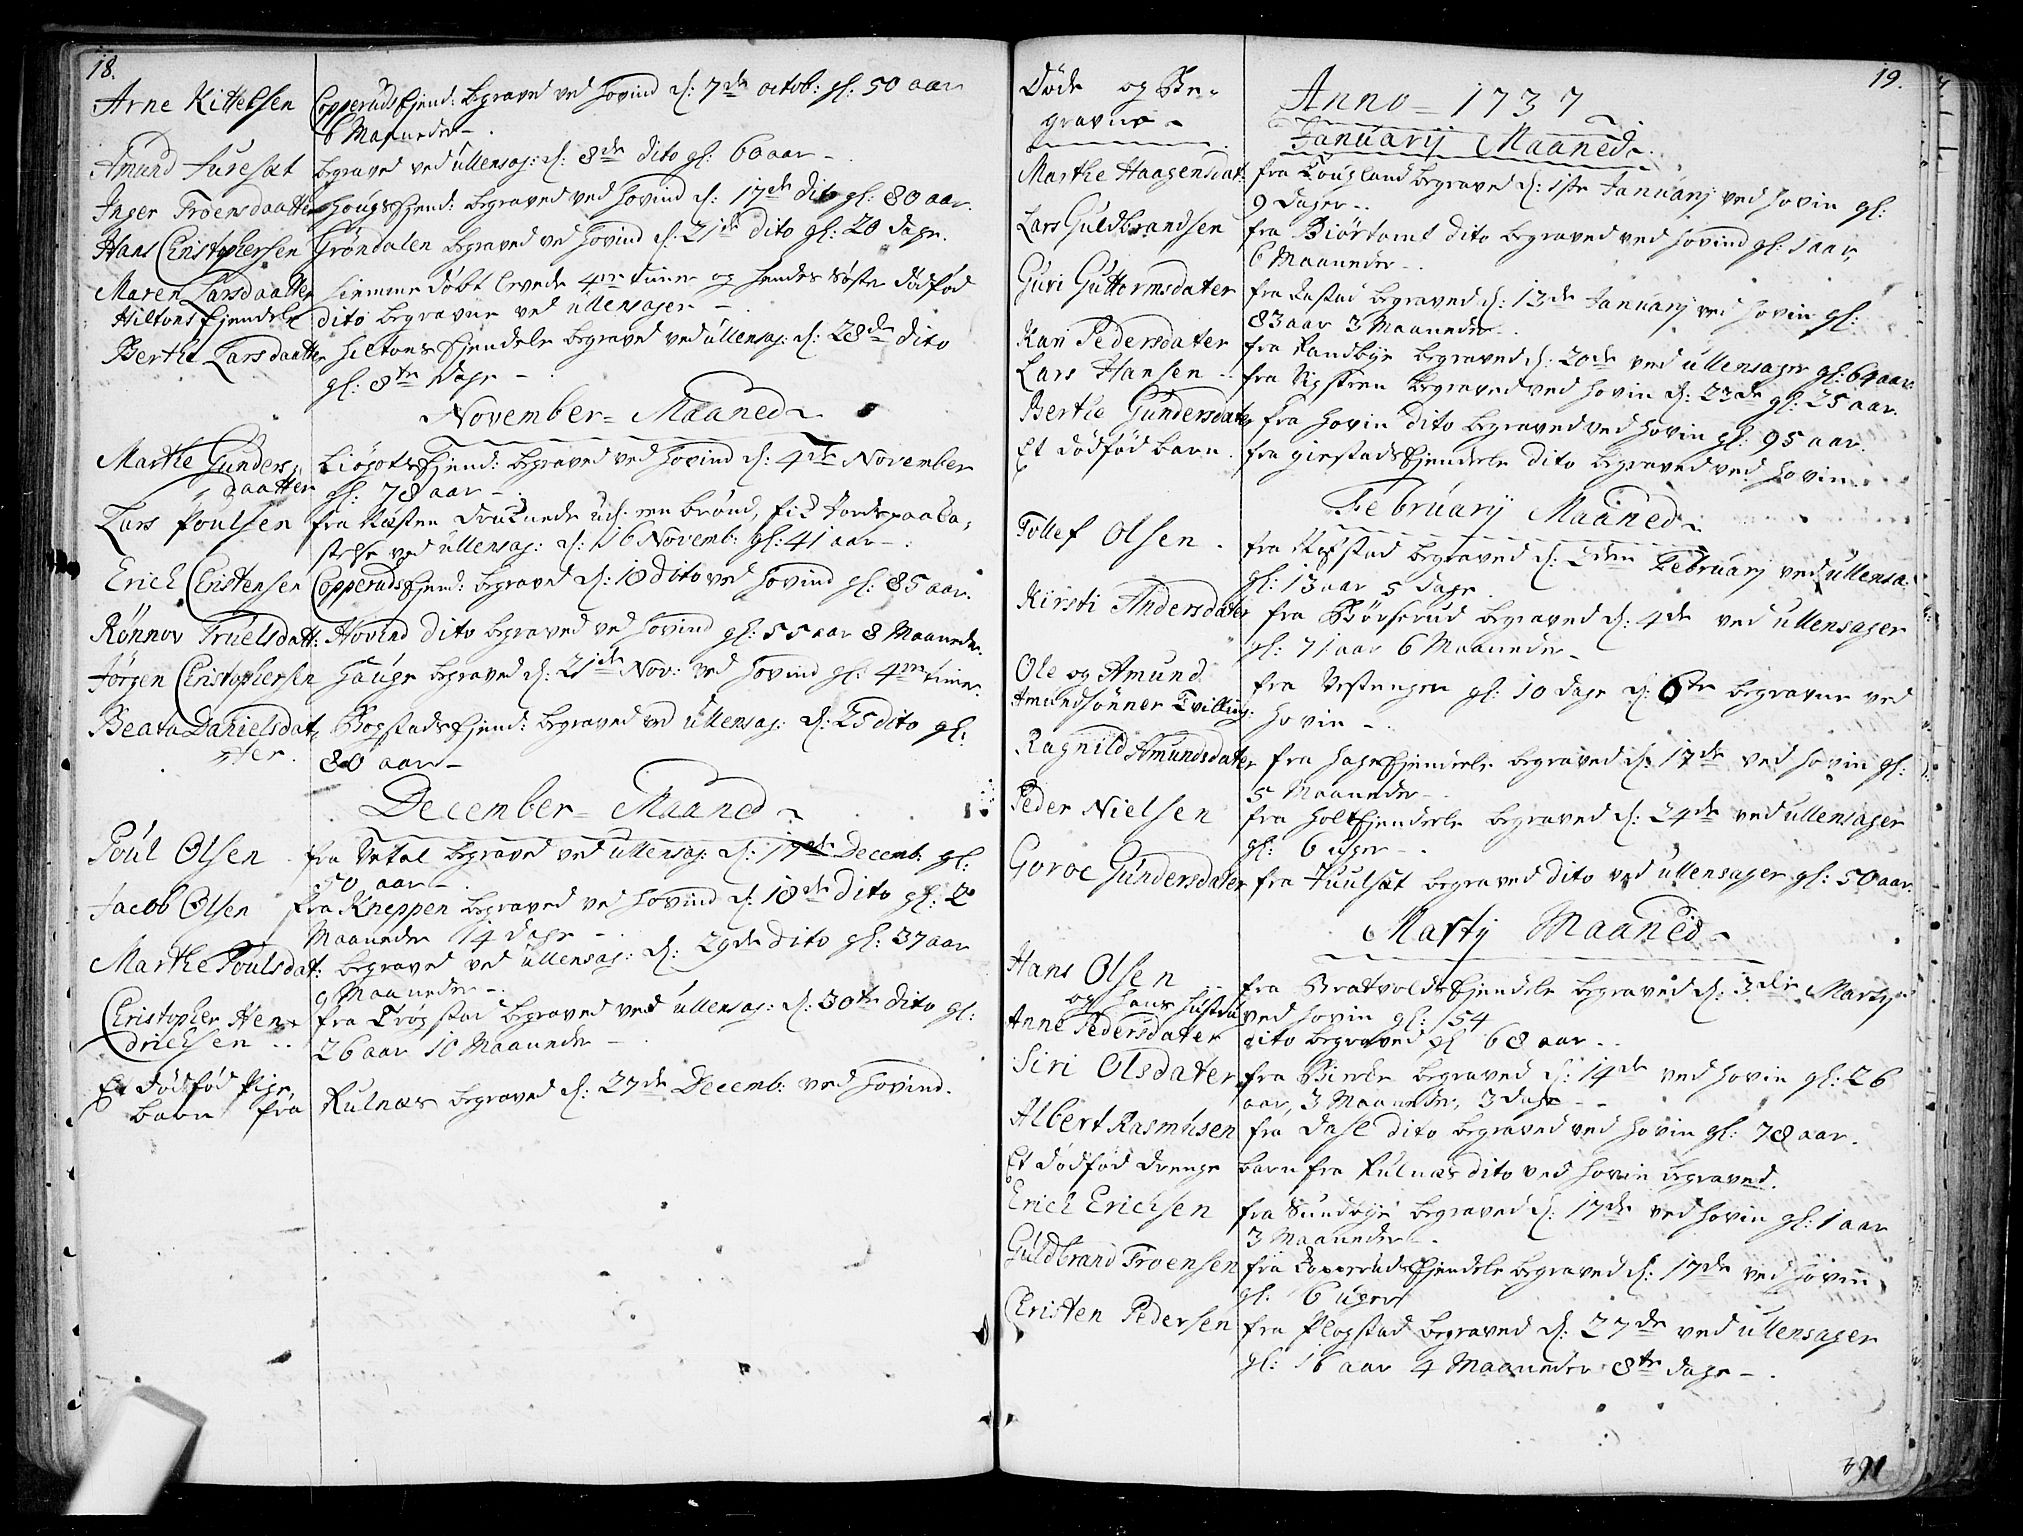 18.
Arne Kittelsen Copperuds Ejend: begraved ved Hovind d: 7de octob: gl: 50 aar
6 Maaneder -
Amund Furesæt begraved ved ullensag: d: 8de dito gl: 60 aar -
Inger Troensdaatter Hougs Ejend: begraved ved Hovind d: 17de dito gl: 80 aar.
Hans Christophersen Gröndalen begraved ved Hovind d: 21de dito gl: 20 dage.
Maren Larsdaatter hiemme döbt levede 4re timer og hendes Söster dödföd
Hiltons Ejendele dito begravne ved ullensager -
Berthe Larsdaatter Hiltons Ejendele begraved ved ullensag: d: 28de dito
gl: 8te dage -
November = Maaned
Marthe Gunders- Liögots Ejend: begraved ved Hovind d: 4de November
daatter gl: 78 aar -
Lars Poulsen fra Næsten druknede udj een brönd, fik Jordspaaka-
stelse ved ullensag: d: 16 Novemb: gl: 41 aar -
Erich Christensen Copperuds Ejend: begraved d: 18 dito ved Hovind gl: 85 aar.
Rönnov Truelsdatt: Hovind dito begraved ved Hovind gl: 55 aar 8 Maaneder.
Jörgen Christophersen Houge begraved d: 21de Nov: ved Hovind gl: 4re timer.
Beata Danielsdat- Bogstads Ejend: begraved ved ullensag: d: 25 dito gl:
ter. 80 aar -
December = Maaned
Poul Olsen fra Vetal begraved ved ullensag: d: 17de Decemb: gl:
50 aar -
Jacob Olsen fra Kneppen begraved ved Hovind d: 18de dito gl: 2
Maaneder 14 dage -
Marthe Poulsdat: begraved ved ullensag: d: 29de dito gl: 37 aar
9 Maaneder -
Christopher Hen- fra Trogstad begraved ved ullensag: d: 30te dito gl:
drichsen 26 aar 10 Maaneder -
Et dödföd Pige
barn fra Rulnæs begraved d: 27de Decemb: ved Hovind.
19.
Döde og Be-
gravne -
Anno = 1737
Januarij Maaned
Marthe Haagensdat: fra Tougland begraved d: 1ste Januarij ved Hovin gl:
9 Dager -
Lars Guldbrandsen fra Biörtomt dito begraved ved Hovind gl: 1 aar,
6 Maaneder -
Guri Guttormsdater fra Rastad begraved d: 13de Januarij ved Hovin gl:
83 aar 3 Maaneder.
Kari Pedersdater fra Randbye begraved d: 20de ved ullensager gl: 64 aar
Lars Hansen fra Nigsteen begraved ved Hovin d: 23de gl: 25 aar.
Berthe Gundersdater fra Hovin dito begraved ved Hovin gl: 95 aar.
Et dödföd barn fra Gierstads Ejendele dito begraved ved Hovin
Februarij Maaned
Tollef Olsen fra Kofstad begraved d: 2den Februarij ved ullensa:
gl: 13 aar 5 dage
Kirsti Andersdater fra Börserud begraved d: 4de ved ullensager
gl: 71 aar 6 Maaneder -
Ole og Amund fra Vestengen gl: 10 dage d: 6te begravne ved
Amundsönner Tvilling: Hovin -
Ragnild Amundsdater fra Hage Ejendele begraved d: 17de ved Hovin gl:
5 Maaneder -
Peder Nielsen fra Holt Ejendele begraved d: 24de ved ullensager
gl: 6 uger -
Goroe Gundersdater fra Juulsæt begraved dito ved ullensager gl: 50 aar.
Martij Maaned
Hans Olsen fra Bratvolds Ejendele begraved d: 3die Martij
og hans hustru ved Hovin gl: 54
Anne Pedersdater dito begraved gl 68 aar -
Siri Olsdater fra Bierke begraved d: 14de ved Hovin gl: 26
aar, 3 Maaneder, 3 dage -
Albert Rasmusen fra Dahl dito begraved ved Hovin gl: 78 aar.
Et dödföd drenge barn fra Rulnæs dito ved Hovin begraved.
Erich Erichsen fra Sundbye begraved d: 17de ved Hovin gl: 1 aar
3 Maaneder.
Guldbrand Troensen fra Copperuds Ejendele begraved d: 17de ved Hovin
gl: 6 uger
Christen Pedersen fra Flogstad begraved d: 27de ved ullensager
gl: 16 aar 4 Maaneder 8te dage -